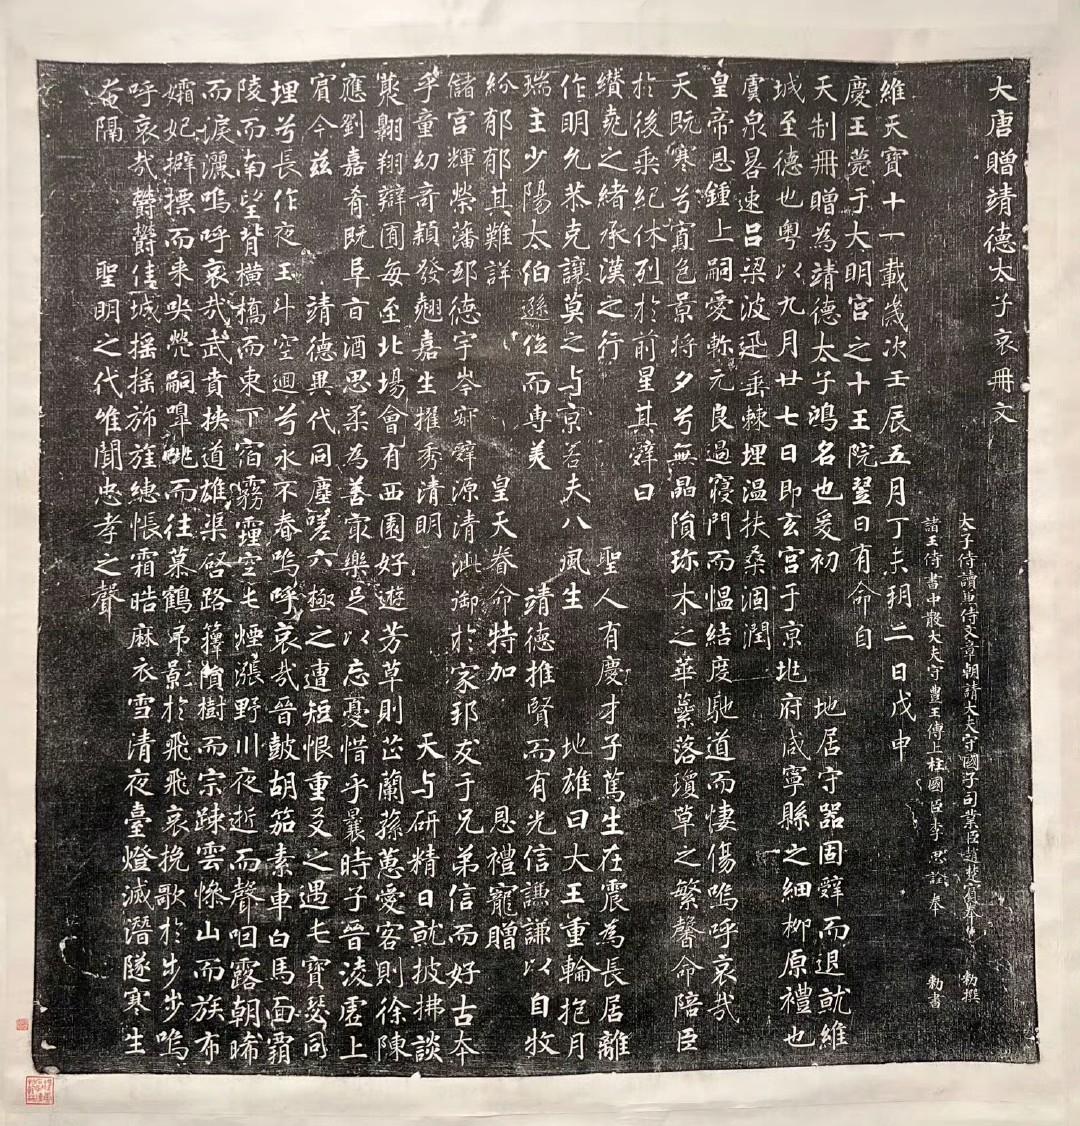 大唐贈靖德太子哀冊文
太子侍讀兼侍文章朝請大夫守國子司業臣趙楚賓奉 勅撰
諸王侍書中散大夫守豐王傅上柱國臣李思詮奉 勅書
維天寶十一載歲次壬辰五月丁未朔二日戊申
慶王薨于大明宮之十王院翌日有命自
天制冊贈為靖德太子鴻名也爰初 地居守器固辞而退就維
城至德也粤以九月廿七日即玄宮于京兆府咸寧縣之細柳原禮也
虞泉晷速呂梁波迅垂棘埋溫扶桑涸潤
皇帝恩鍾上嗣愛軫元良過寢門而慍結度馳道而悽傷嗚呼哀哉
天既寒兮寘色景將夕兮無晶隕珎木之華蘂落瓊草之繁馨命陪臣
於後乘紀休烈於前星其辞曰
纘堯之緒承漢之行 聖人有慶才子篤生在震為長居離
作明允恭克讓莫之与京若夫八風生 地雄曰大王重輪抱月
瑞主少陽太伯遜位而專美 靖德推賢而有光信謙謙以自牧
紛郁郁其難詳 皇天眷命特加 恩禮寵贈
儲宮輝榮藩邸德宇岑寂辞源清泚御於家邦友于兄弟信而好古本
乎童幼奇穎發翹嘉生擢秀清明 天与研精日就披拂談
藂翱翔辯囿每至北場會有西園好遊芳草則芷蘭蓀蕙愛客則徐陳
應劉嘉肴既阜旨酒思柔為善寂樂足以忘憂惜乎曩時子晉淩虛上
賓今茲 靖德異代同塵嗟六極之遭短恨重爻之遇屯寶瑟同
埋兮長作夜玉斗空迴兮永不春嗚呼哀哉晉鼓胡笳素車白馬面霸
陵而南望背橫橋而東下宿霧霾空屯煙漲野川夜逝而聲咽露朝晞
而淚灑嗚呼哀哉武賁挾道雄渠啓路籜隕樹而宗踈雲慘山而族布
孀妃擗摽而來哭煢嗣嘷咷而往慕鶴弔影於飛飛哀挽歌於步步嗚
呼哀哉欝欝佳城摇摇旂旌繐悵霜晧麻衣雪清夜臺燈滅潛隧寒生
苍隔 聖明之代惟聞忠孝之聲